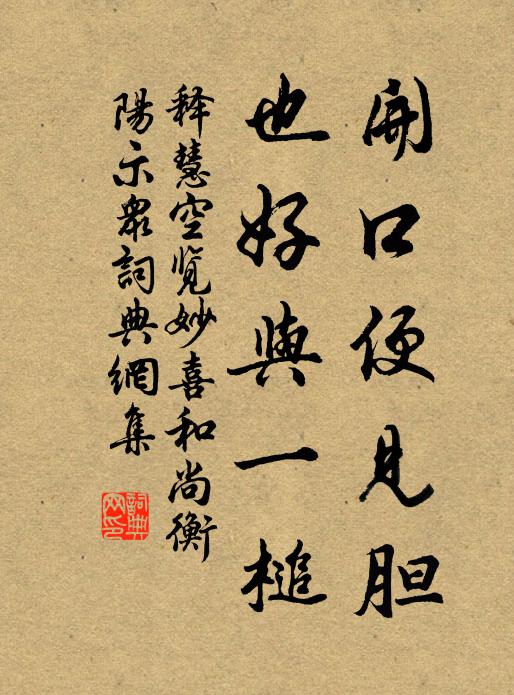 開口便見胆
也好與一槌
释慧空览妙喜和尚衡
陽示衆詞典網集
詞典網印